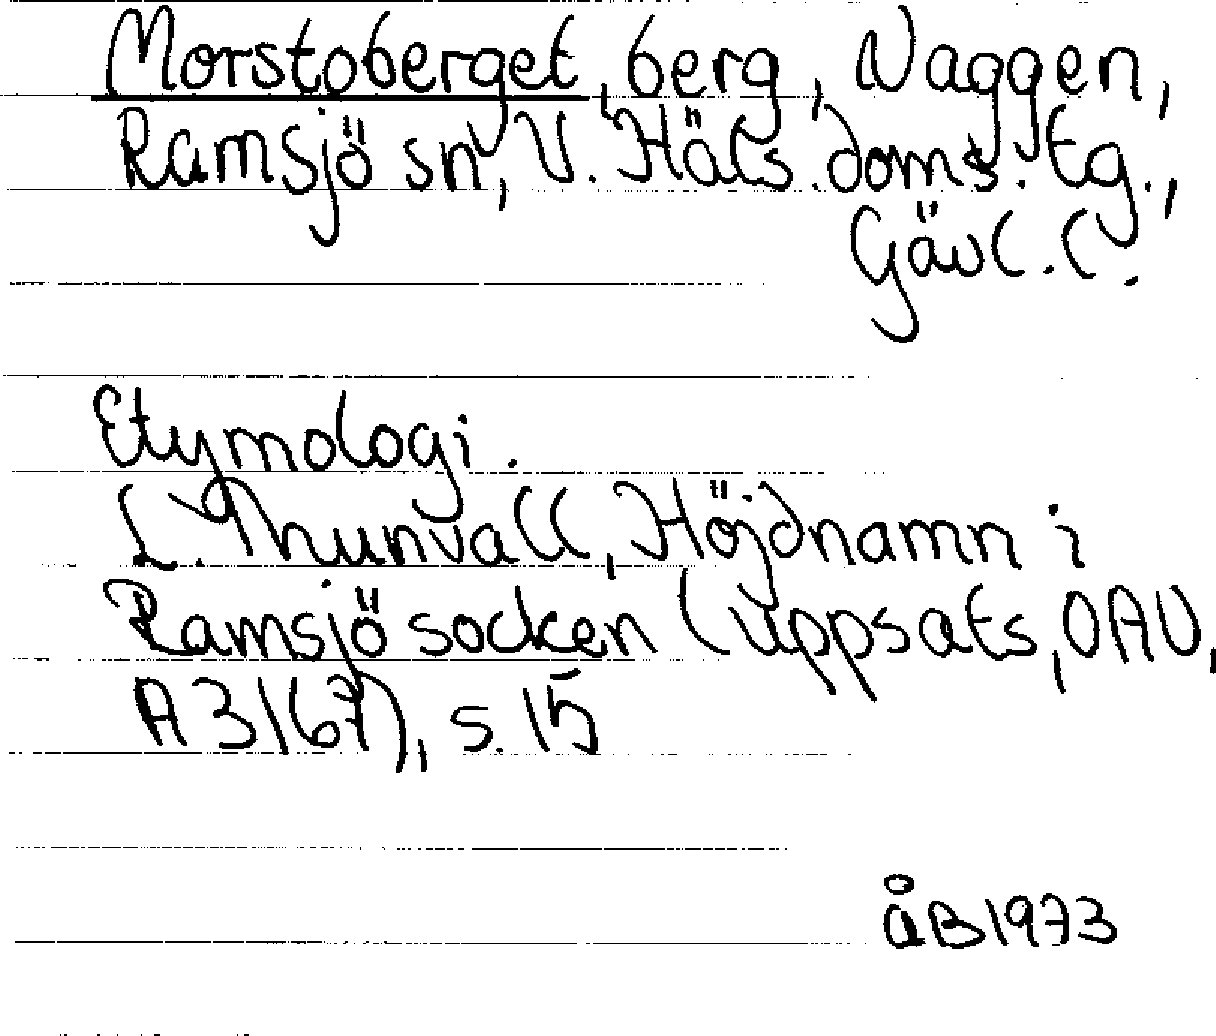 Morstoberget, berg, Naggen,
Ramsjö sn, V. Häls. doms. tg.,
Gävl. l.
Etymologi.
L. Thunvall, Höjdnamn i
Ramsjö socken (uppsats, OAU,
A 3167), s. 15
åB 1973